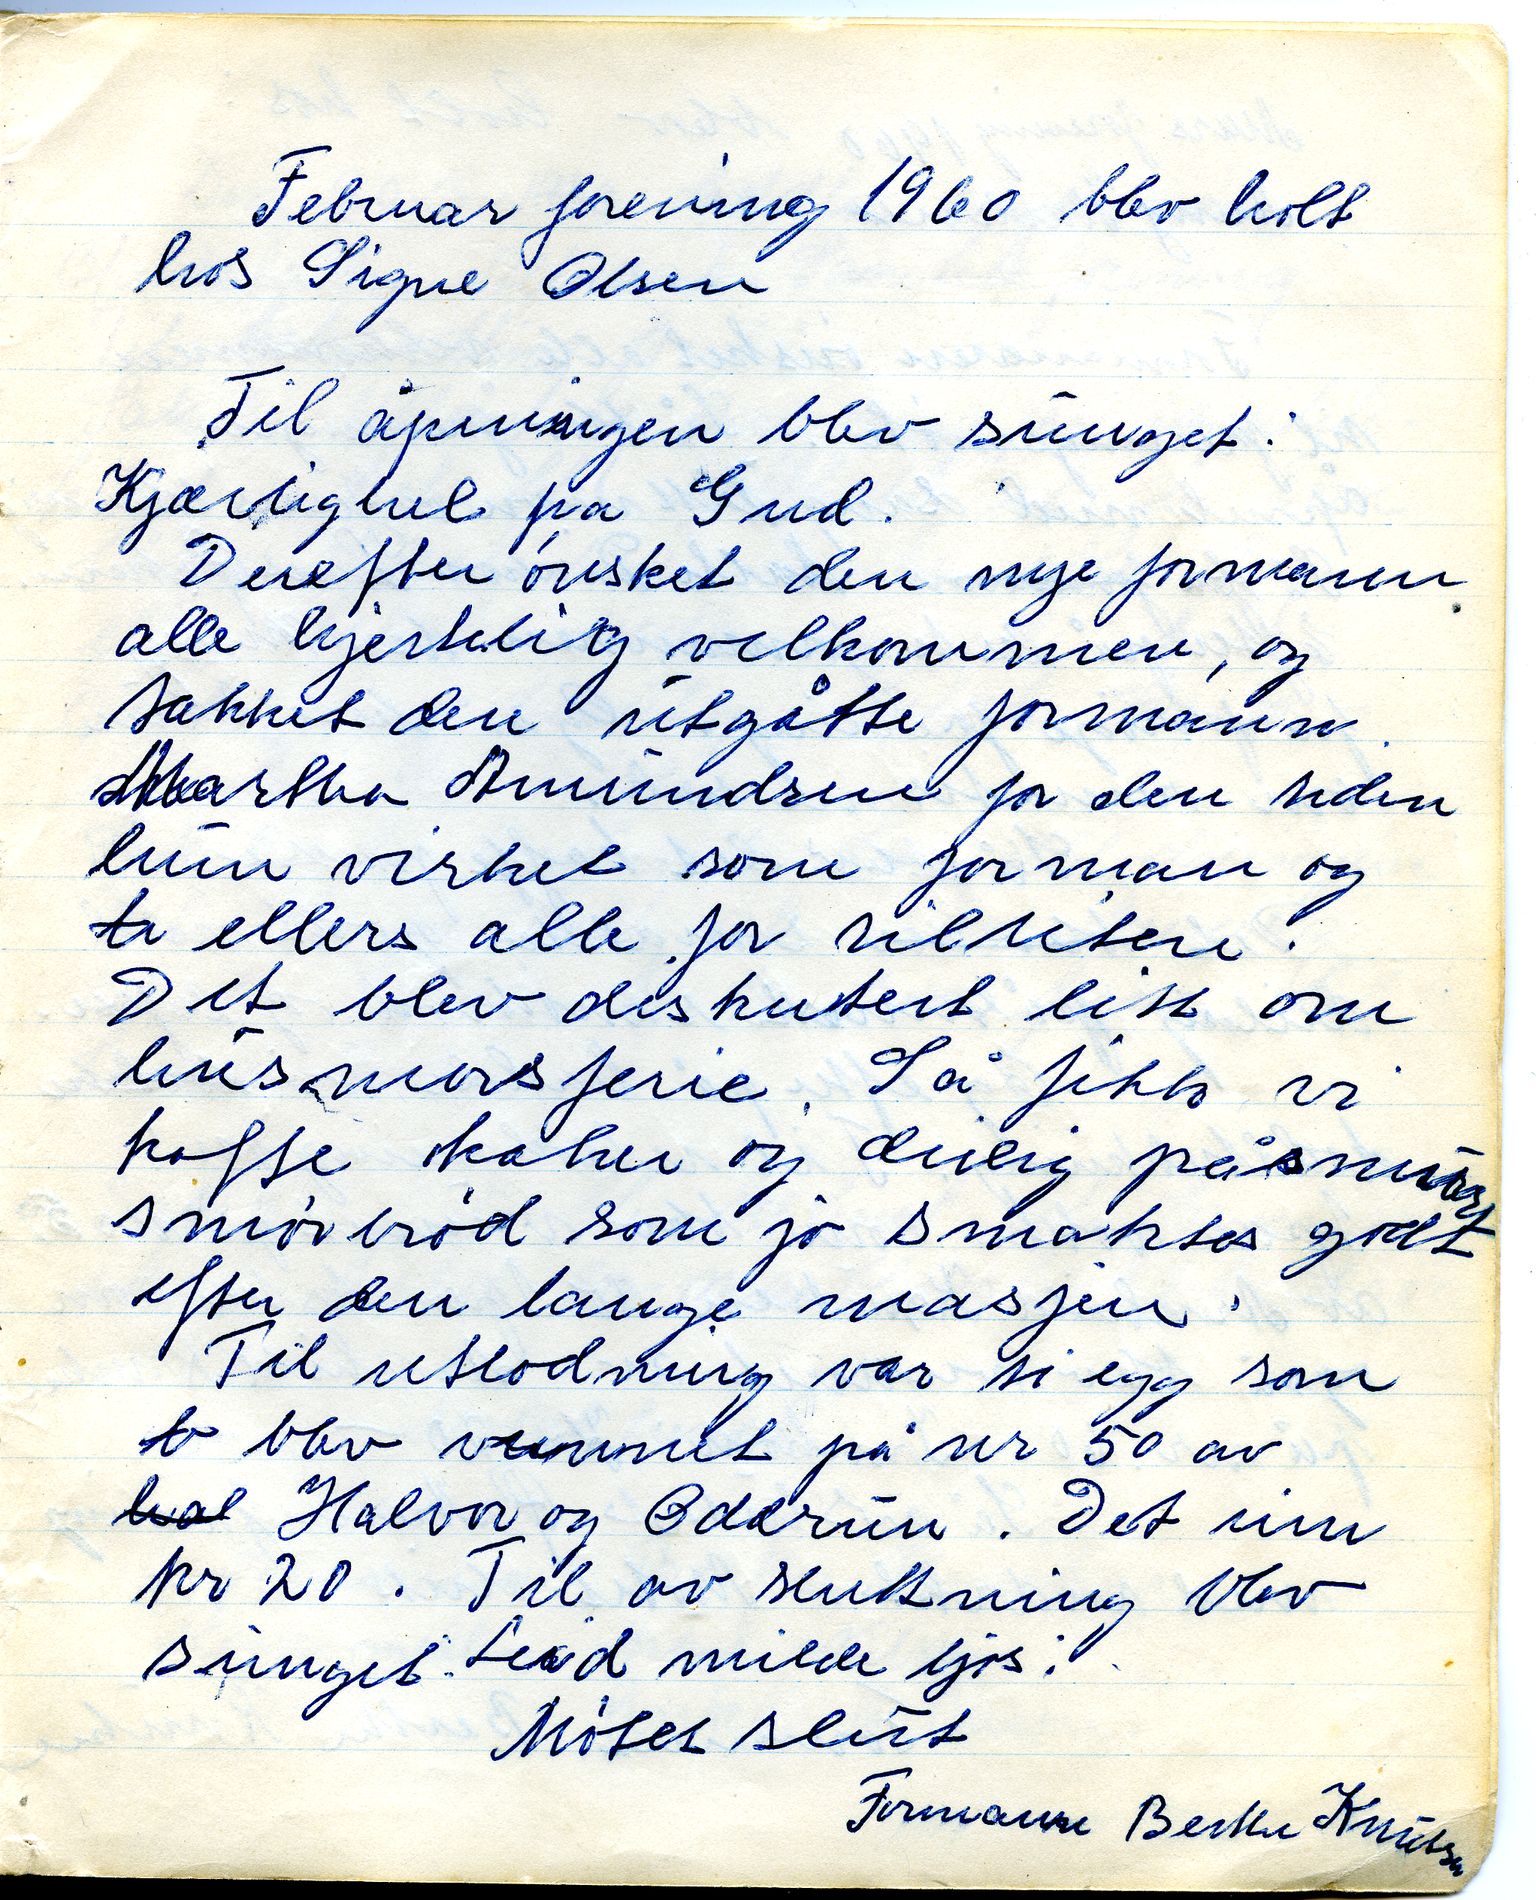 Februar forening 1960 blev holt
hos Signe Olsen
Til åpningen blev sunget:
Kjærlighet fra Gud.
Derefter ønsket den nye formann
alle hjertelig velkommen, og
takket den utgåtte formann
Martha Amundsen for den tiden
hun virket som forman og
ellers alle for tilliten.
Det blev diskutert litt om
husmorsferie. Så fikk vi
kaffe kaker og deilig påsmurt
smørbrød som jo smaktes godt
efter den lange masjen.
Til utlodning var ti egg som
blev vunnet på nr 50 av
Halvor og Oddrun. Det inn
kr 20. Til avslutning blev
sunget. Leid milde ljos.
Møtet slut
Formann Berthe Knutsen